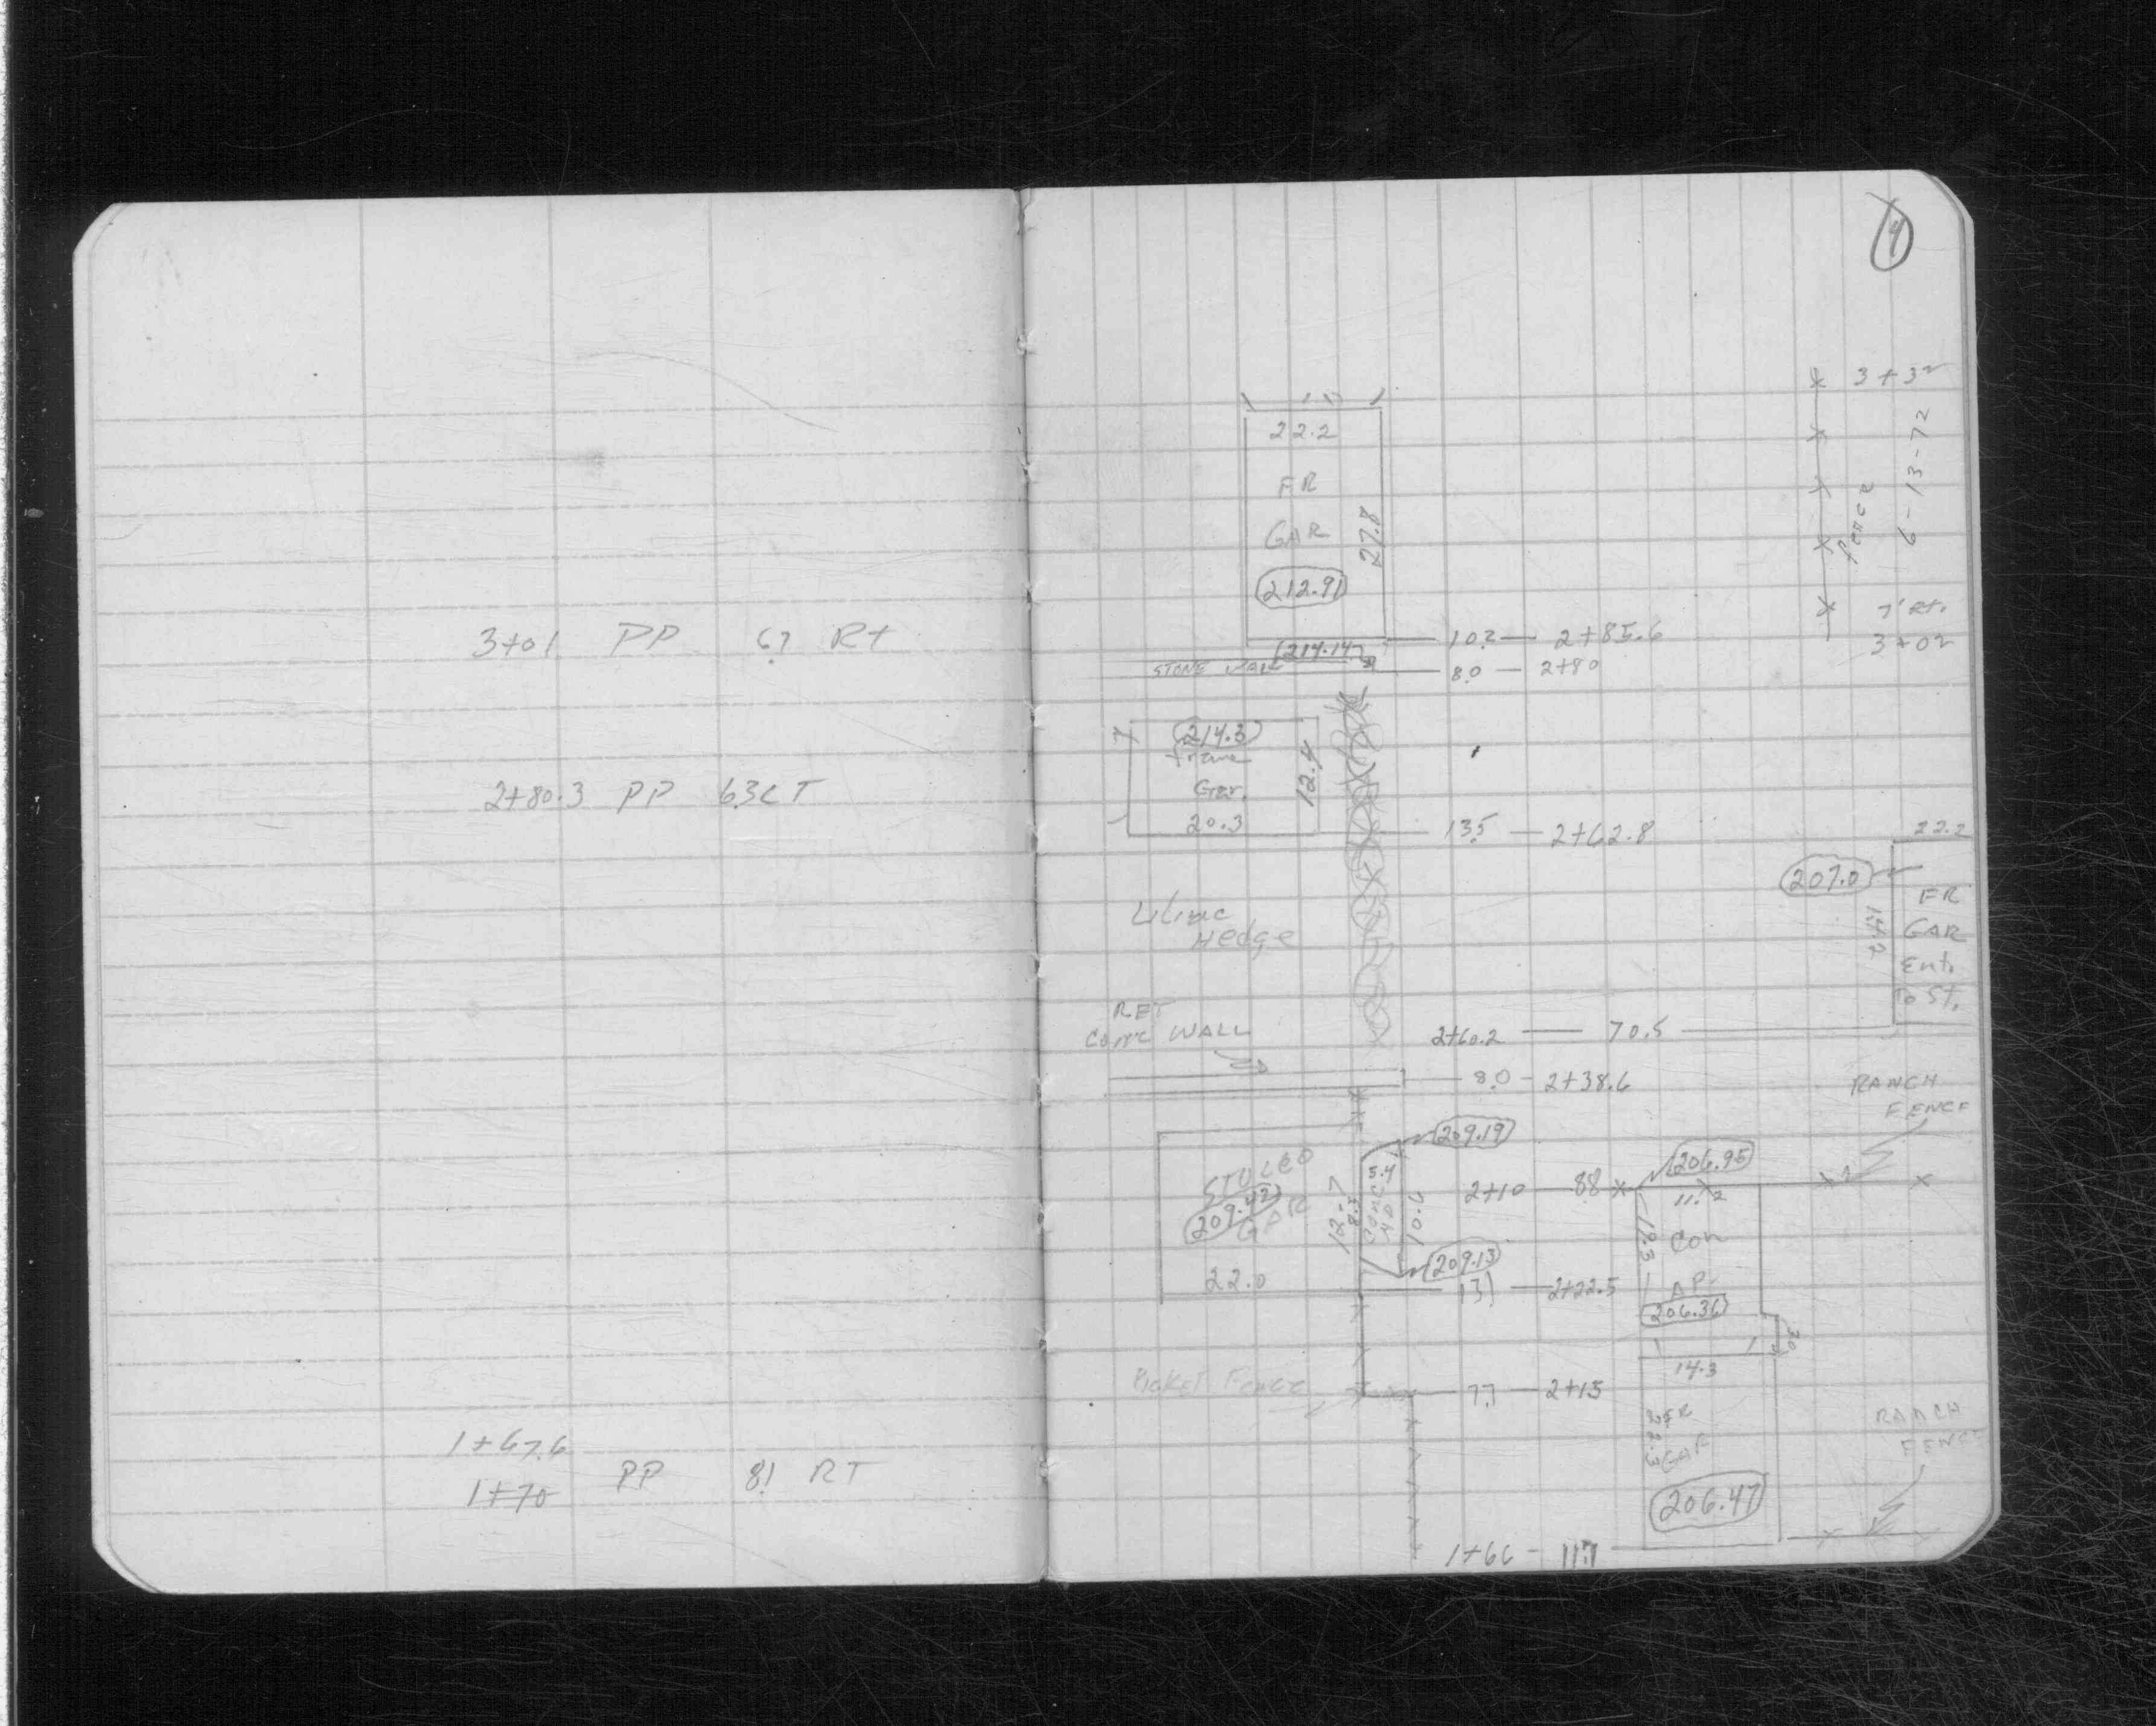 3+01 PP 6.7 Rt
2+80.3 PP 6.3 LT
1+67.6
1+70 PP 8.1 RT
4
3+32
6-13-72
fence
7' Rt.
3+02
22.2
FR
GAR
27.8
212.91
10.2 — 2+85.6
214.14
STONE WALL
8.0 — 2+80
214.3
frame
Gar.
12.4
20.3
13.5 — 2+62.8
22.2
207.0
FR
GAR
Ent.
To St.
14.2
Lilac
Hedge
RET
Conc WALL
2+60.2 — 70.5
8.0 - 2+38.6
RANCH
FENCE
209.19
STUCCO
209.42
GAR
22.0
12.7
5.4
CONC
10.4
2+10 88
206.95
11.2
19.3
Con
AP.
206.36
209.13
13.1 — 2+22.5
14.3
Picket Fence
7.7 — 2+15
FR
GAR
22.3
206.47
RANCH
FENCE
1+66 - 11.7